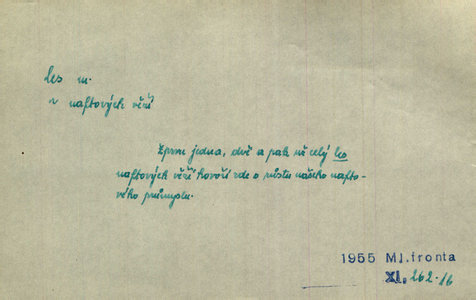 les m.
~ naftových věží
Zprvu jedna, dvě a pak už celý les
naftových věží hovoří zde o růstu našeho nafto-
vého průmyslu.
1955 Ml.fronta
XI. 262.16